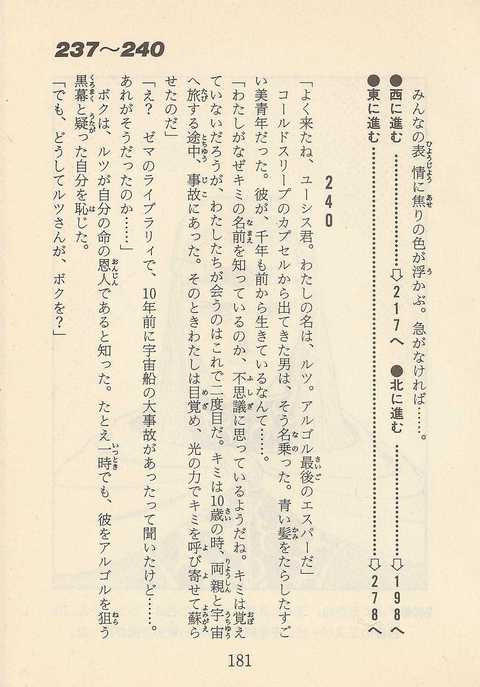 237〜240
みんなの表情に焦りの色が浮かぶ。急がなければ……。
●西に進む……………⇨217へ　●北に進む……………⇨198へ
●東に進む……………⇨278へ
240
「よく来たね、ユーシス君。わたしの名は、ルツ。アルゴル最後のエスパーだ」
コールドスリープのカプセルから出てきた男は、そう名乗った。青い髪をたらしたすご
い美青年だった。彼が、千年も前から生きているなんて……。
「わたしがなぜキミの名前を知っているのか、不思議に思っているようだね。キミは覚え
ていないだろうが、わたしたちが会うのはこれで二度目だ。キミは10歳の時、両親と宇宙
へ旅する途中、事故にあった。そのときわたしは目覚め、光の力でキミを呼び寄せて蘇ら
せたのだ」
「え？　ゼマのライブラリィで、10年前に宇宙船の大事故があったって聞いたけど……。
あれがそうだったのか……」
ボクは、ルツが自分の命の恩人であると知った。たとえ一時でも、彼をアルゴルを狙う
黒幕と疑った自分を恥じた。
「でも、どうしてルツさんが、ボクを？」
181